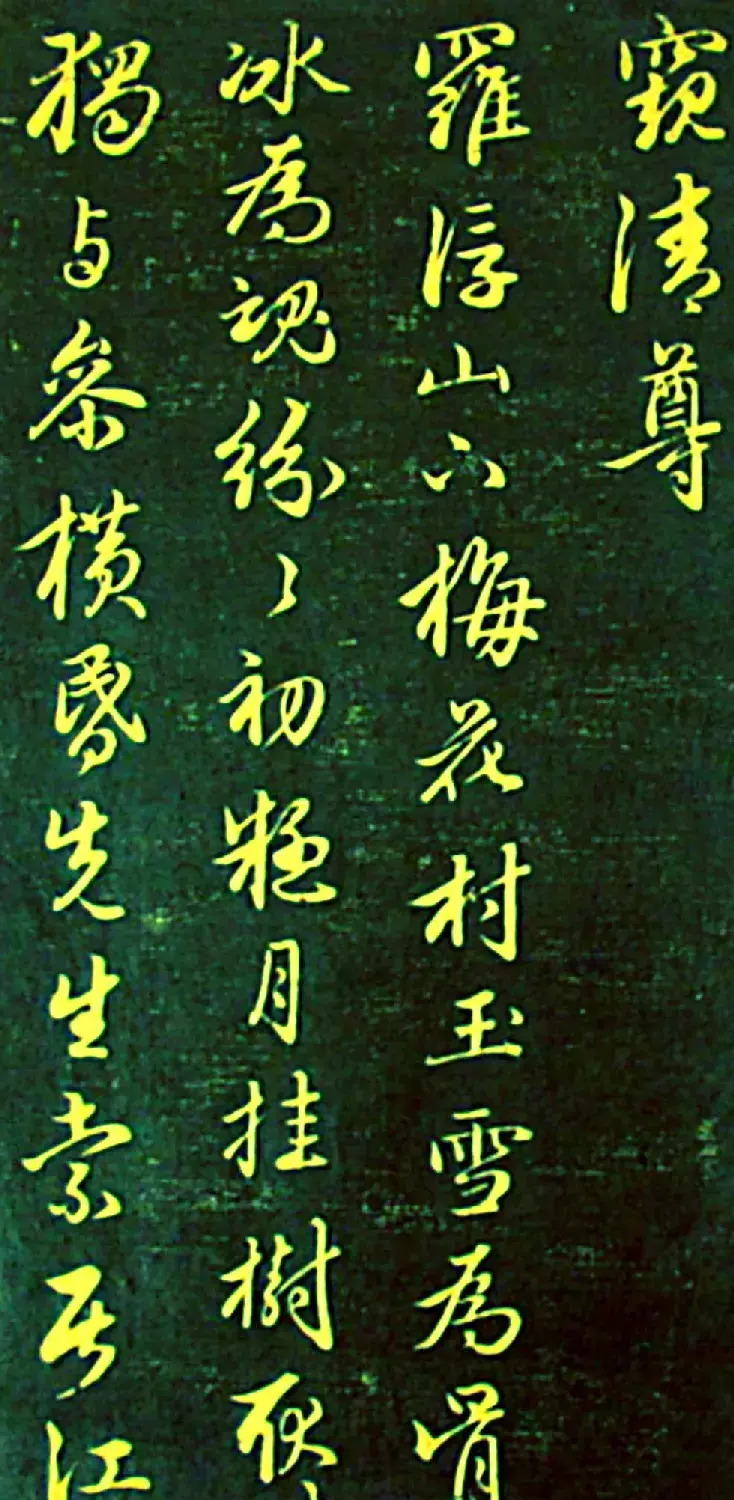 窺清尊
羅浮山下梅花村玉雪為骨
冰為魂紛〻初疑月挂樹耿
獨与參橫昏先生索居江